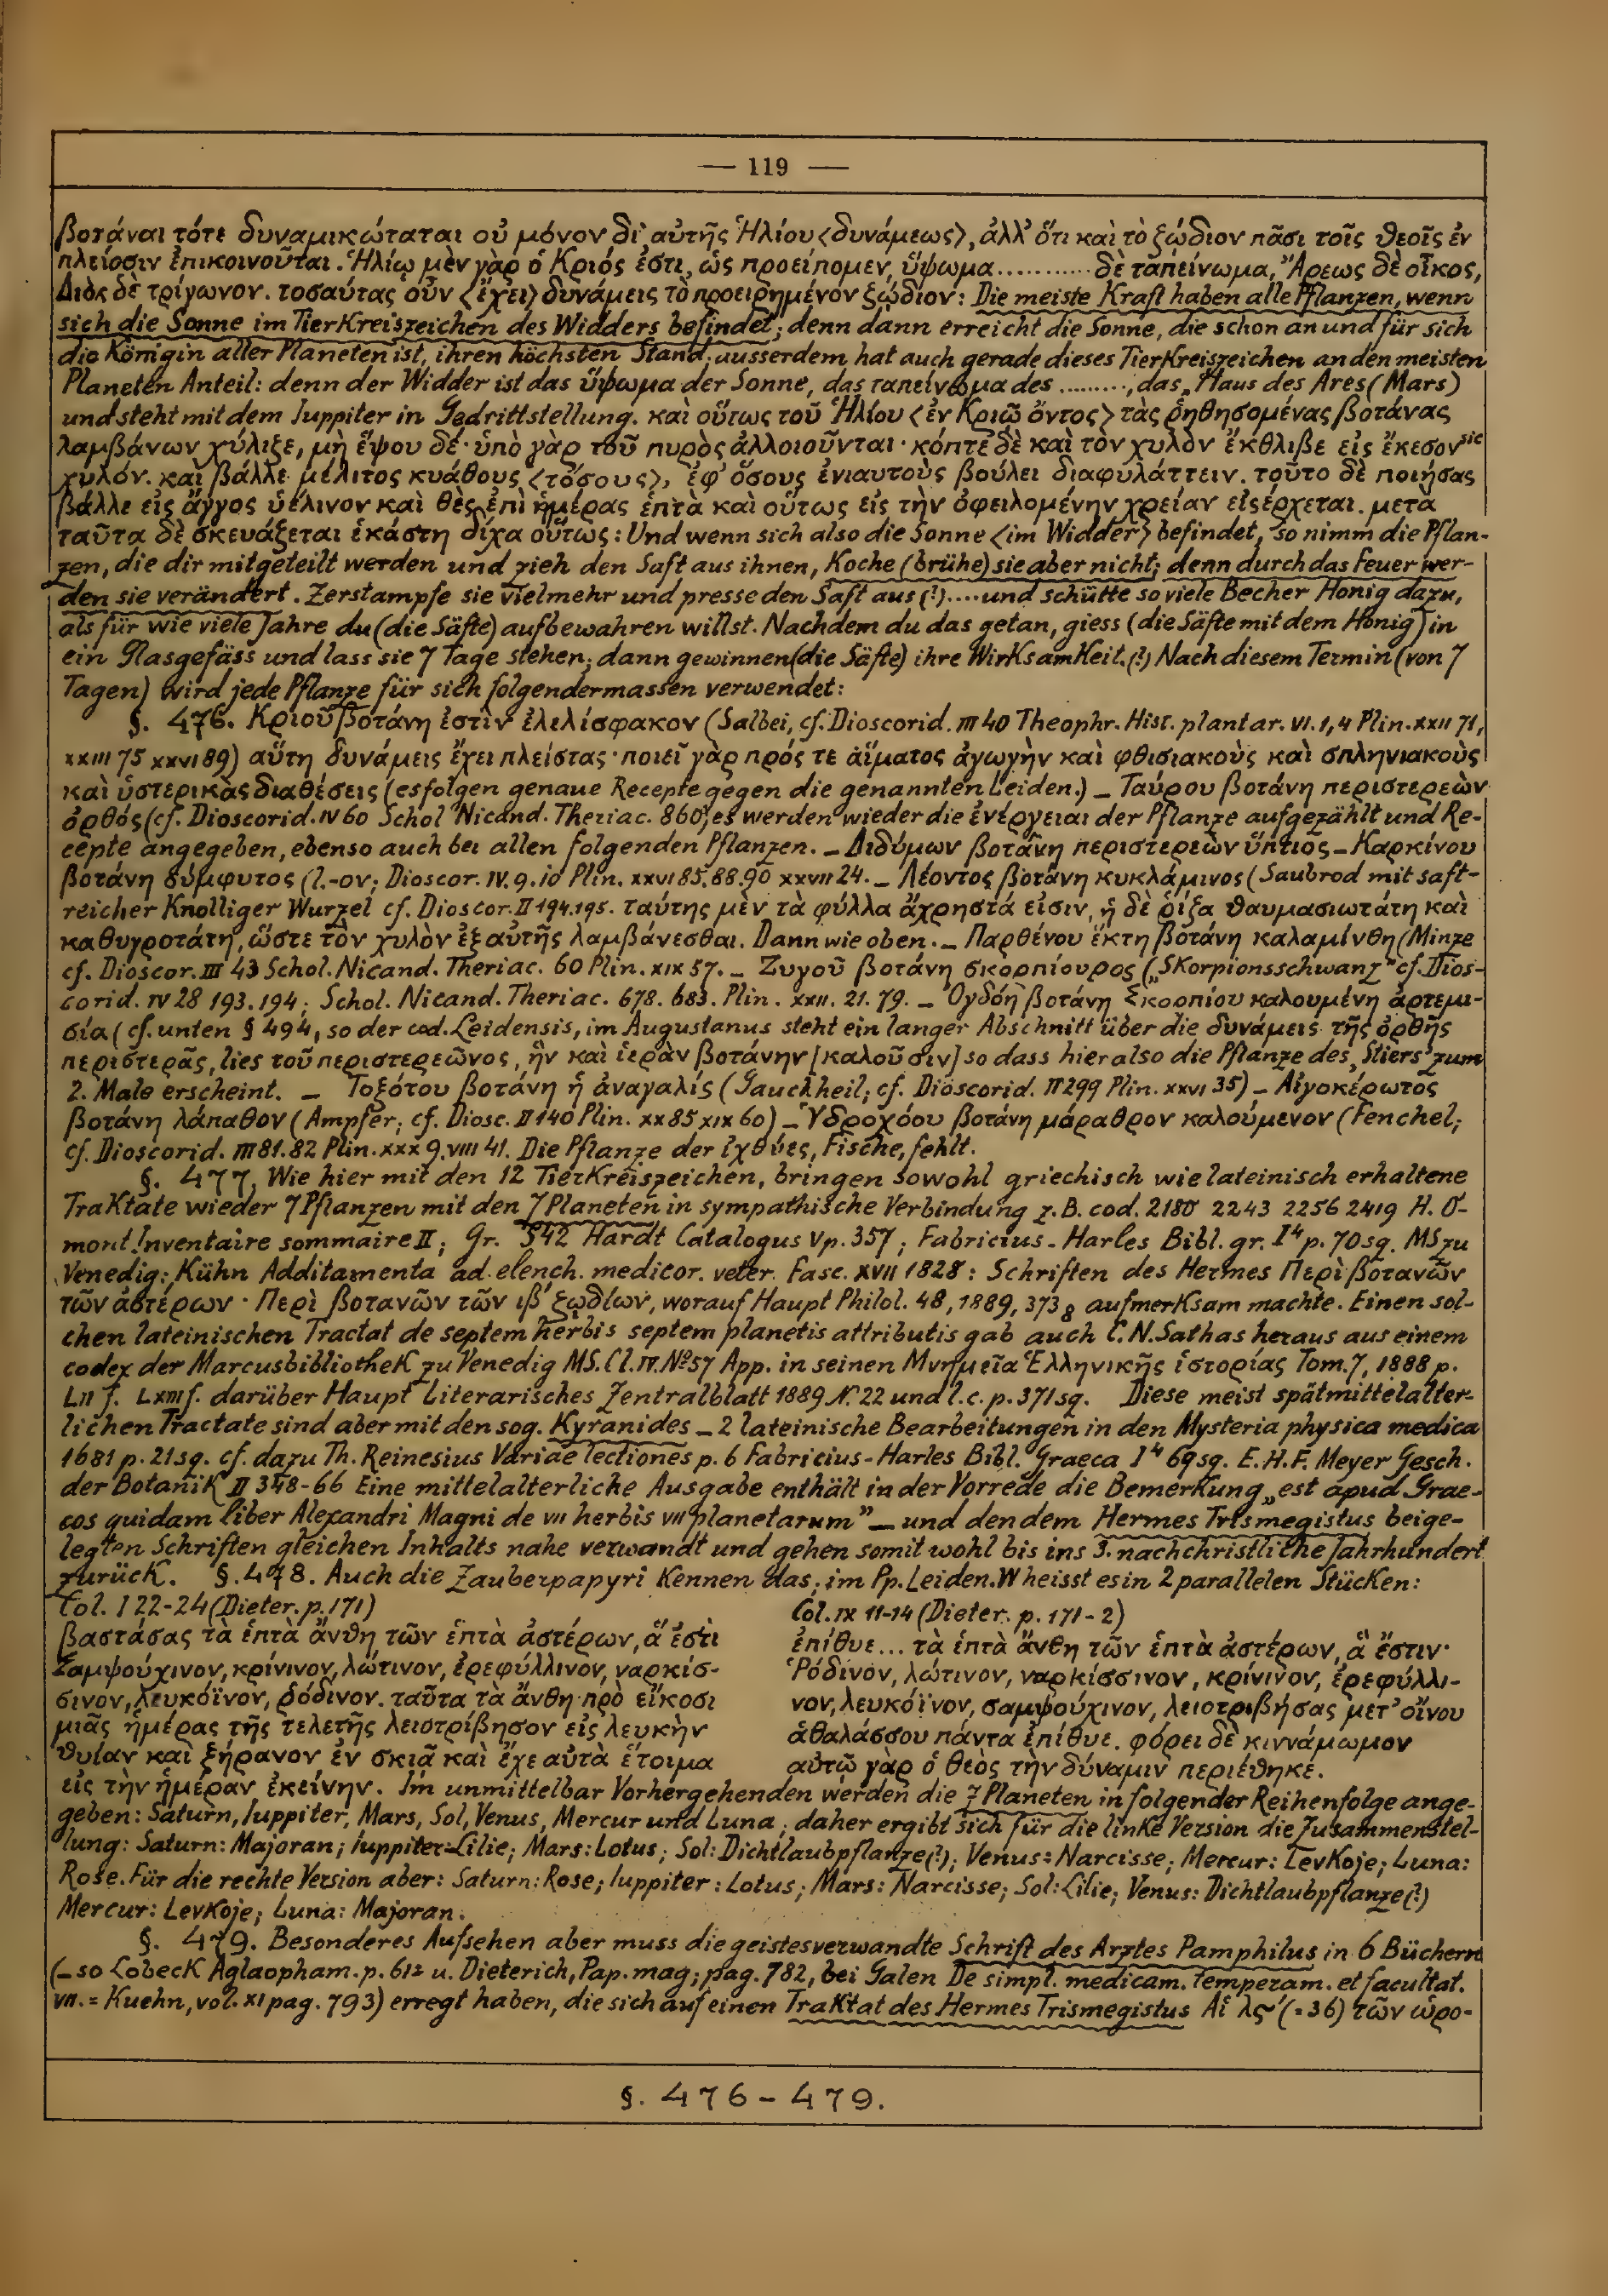 — 119 —
βοτάναι τότε δυναμικώταται οὐ μόνον δι' αὐτῆς Ἡλίου <δυνάμεως>, ἀλλ' ὅτι καὶ τὸ ζῴδιον πᾶσι τοῖς θεοῖς ἐν
πλείοσιν ἐπικοινοῦται. Ἡλίῳ μὲν γὰρ ὁ Κριός ἐστι, ὡς προείπομεν, ὕψωμα........... δὲ ταπείνωμα, Ἄρεως δὲ οἶκος,
Διὸς δὲ τρίγωνον. τοσαύτας οὖν <ἔχει> δυνάμεις τὸ προειρημένον ζῴδιον: Die meiste Kraft haben alle Pflanzen, wenn
sich die Sonne im Tierkreiszeichen des Widders befindet; denn dann erreicht die Sonne, die schon an und für sich
die Königin aller Planeten ist, ihren höchsten Stand; ausserdem hat auch gerade dieses Tierkreiszeichen an den meisten
Planeten Anteil: denn der Widder ist das ὕψωμα der Sonne, das ταπείνωμα des ........., das „Haus des Ares (Mars)
und steht mit dem Iuppiter in Gedrittstellung. καὶ οὕτως τοῦ Ἡλίου <ἐν Κριῷ ὄντος> τὰς ῥηθησομένας βοτάνας
λαμβάνων χύλιζε, μὴ ἕψου δέ· ὑπὸ γὰρ τοῦ πυρὸς ἀλλοιοῦνται· κόπτε δὲ καὶ τὸν χυλὸν ἔκθλιβε εἰς ἕκεσον sic
χυλόν. καὶ βάλλε μέλιτος κυάθους <τόσους>, ἐφ' ὅσους ἐνιαυτοὺς βούλει διαφυλάττειν. τοῦτο δὲ ποιήσας
βάλλε εἰς ἄγγος ὑέλινον καὶ θὲς ἐπὶ ἡμέρας ἑπτὰ καὶ οὕτως εἰς τὴν ὀφειλομένην χρείαν εἰσέρχεται. μετὰ
ταῦτα δὲ σκευάζεται ἑκάστη δίχα οὕτως: Und wenn sich also die Sonne <im Widder> befindet, so nimm die Pflan-
zen, die dir mitgeteilt werden und zieh den Saft aus ihnen, koche (brühe) sie aber nicht; denn durch das Feuer wer-
den sie verändert. Zerstampfe sie vielmehr und presse den Saft aus (!).... und schütte so viele Becher Honig dazu,
als für wie viele Jahre du (die Säfte) aufbewahren willst. Nachdem du das getan, giess (die Säfte mit dem Honig) in
ein Glasgefäss und lass sie 7 Tage stehen; dann gewinnen (die Säfte) ihre Wirksamkeit. (!) Nach diesem Termin (von 7
Tagen) wird jede Pflanze für sich folgendermassen verwendet:
§. 476. Κριοῦ βοτάνη ἐστὶν ἐλελίσφακον (Salbei, cf. Dioscorid. III 40 Theophr. Hist. plantar. VI. 1, 4 Plin. XXII 71,
XXIII 75 XXVI 89) αὕτη δυνάμεις ἔχει πλείστας· ποιεῖ γὰρ πρός τε αἵματος ἀγωγὴν καὶ φθισιακοὺς καὶ σπληνιακοὺς
καὶ ὑστερικὰς διαθέσεις (es folgen genaue Recepte gegen die genannten Leiden.) – Ταύρου βοτάνη περιστερεὼν
ὀρθός (cf. Dioscorid. IV 60 Schol Nicand. Theriac. 860; es werden wieder die ἐνέργειαι der Pflanze aufgezählt und Re-
cepte angegeben, ebenso auch bei allen folgenden Pflanzen. – Διδύμων βοτάνη περιστερεὼν ὕπτιος – Καρκίνου
βοτάνη σύμφυτος (l. -ον; Dioscor. IV. 9. 10 Plin. XXVI 85. 88. 90 XXVII 24. – Λέοντος βοτάνη κυκλάμινος (Saubrod mit saft-
reicher knolliger Wurzel cf. Dioscor. II 194. 195. ταύτης μὲν τὰ φύλλα ἄχρηστά εἰσιν, ἡ δὲ ῥίζα θαυμασιωτάτη καὶ
καθυγροτάτη, ὥστε τὸν χυλὸν ἐξ αὐτῆς λαμβάνεσθαι. Dann wie oben. – Παρθένου ἕκτη βοτάνη καλαμίνθη (Minze
cf. Dioscor. III 43 Schol. Nicand. Theriac. 60 Plin. XIX 57. – Ζυγοῦ βοτάνη σκορπίουρος („Skorpionsschwanz" cf. Dios-
corid. IV 28 193. 194; Schol. Nicand. Theriac. 678. 683. Plin. XXII. 21. 79. – Ὀγδόη βοτάνη Σκορπίου καλουμένη ἀρτεμι-
σία (cf. unten § 494, so der cod. Leidensis, im Augustanus steht ein langer Abschnitt über die δυνάμεις τῆς ὀρθῆς
περιστερᾶς, lies τοῦ περιστερεῶνος, ἣν καὶ ἱερὰν βοτάνην [καλοῦσιν] so dass hier also die Pflanze des „Stiers" zum
2. Male erscheint. – Τοξότου βοτάνη ἡ ἀναγαλίς (Gauchheil; cf. Dioscorid. II 299 Plin. XXVI 35) – Αἰγοκέρωτος
βοτάνη λάπαθον (Ampfer; cf. Diosc. II 140 Plin. XX 85 XIX 60) – Ὑδροχόου βοτάνη μάραθρον καλούμενον (Fenchel;
cf. Dioscorid. III 81. 82 Plin. XXX 9. VIII 41. Die Pflanze der Ἰχθύες, Fische, fehlt.
§. 477. Wie hier mit den 12 Tierkreiszeichen, bringen sowohl griechisch wie lateinisch erhaltene
Traktate wieder 7 Pflanzen mit den 7 Planeten in sympathische Verbindung z. B. cod. 2180 2243 2256 2419 H. O-
mont Inventaire sommaire II; Gr. 542 Hardt Catalogus V p. 357; Fabricius-Harles Bibl. gr. I⁴ p. 70 sq. MS zu
Venedig: Kühn Additamenta ad elench. medicor. veter. Fasc. XVII 1828: Schriften des Hermes Περὶ βοτανῶν
τῶν ἀστέρων · Περὶ βοτανῶν τῶν ιβ' ζῳδίων, worauf Haupt Philol. 48, 1889, 373 8 aufmerksam machte. Einen sol-
chen lateinischen Tractat de septem herbis septem planetis attributis gab auch C. N. Sathas heraus aus einem
codex der Marcusbibliothek zu Venedig MS. Cl. IV. Nº 57 App. in seinen Μνημεῖα Ἑλληνικῆς ἱστορίας Tom. 7, 1888 p.
LII f. LXIII f. darüber Haupt Literarisches Zentralblatt 1889 N. 22 und l. c. p. 371 sq. Diese meist spätmittelalter-
lichen Tractate sind aber mit den sog. Kyranides – 2 lateinische Bearbeitungen in den Mysteria physica medica
1681 p. 21 sq. cf. dazu Th. Reinesius Variae lectiones p. 6 Fabricius-Harles Bibl. Graeca I⁴ 69 sq. E. H. F. Meyer Gesch.
der Botanik II 348-66 Eine mittelalterliche Ausgabe enthält in der Vorrede die Bemerkung „est apud Grae-
cos quidam liber Alexandri Magni de VII herbis VII planetarum" – und den dem Hermes Trismegistus beige-
legten Schriften gleichen Inhalts nahe verwandt und gehen somit wohl bis ins 3. nachchristliche Jahrhundert
zurück. §. 478. Auch die Zauberpapyri kennen das; im Pp. Leiden. W heisst es in 2 parallelen Stücken:
Col. I 22-24 (Dieter. p. 171)
βαστάσας τὰ ἑπτὰ ἄνθη τῶν ἑπτὰ ἀστέρων, ἅ ἐστι
Σαμψούχινον, κρίνινον, λώτινον, ἐρεφύλλινον, ναρκίσ-
σινον, λευκόϊνον, ῥόδινον. ταῦτα τὰ ἄνθη πρὸ εἴκοσι
μιᾶς ἡμέρας τῆς τελετῆς λειοτρίβησον εἰς λευκὴν
θυίαν καὶ ξήρανον ἐν σκιᾷ καὶ ἔχε αὐτὰ ἕτοιμα
εἰς τὴν ἡμέραν ἐκείνην.
Col. IX 11-14 (Dieter. p. 171-2)
ἐπίθυε... τὰ ἑπτὰ ἄνθη τῶν ἑπτὰ ἀστέρων, ἅ ἔστιν·
Ῥόδινον, λώτινον, ναρκίσσινον, κρίνινον, ἐρεφύλλι-
νον, λευκόϊνον, σαμψούχινον, λειοτριβήσας μετ' οἴνου
ἀθαλάσσου πάντα ἐπίθυε. φόρει δὲ κιννάμωμον
αὐτῷ γὰρ ὁ θεὸς τὴν δύναμιν περιέθηκε.
Im unmittelbar Vorhergehenden werden die 7 Planeten in folgender Reihenfolge ange-
geben: Saturn, Iuppiter, Mars, Sol, Venus, Mercur und Luna; daher ergibt sich für die linke Version die Zusammenstel-
lung: Saturn: Majoran; Iuppiter: Lilie; Mars: Lotus; Sol: Dichtlaubpflanze (!); Venus: Narcisse; Mercur: Levkoje; Luna:
Rose. Für die rechte Version aber: Saturn: Rose; Iuppiter: Lotus; Mars: Narcisse; Sol: Lilie; Venus: Dichtlaubpflanze (!)
Mercur: Levkoje; Luna: Majoran.
§. 479. Besonderes Aufsehen aber muss die geistesverwandte Schrift des Arztes Pamphilus in 6 Büchern
(– so Lobeck Aglaopham. p. 612 u. Dieterich, Pap. mag; pag. 782, bei Galen De simpl. medicam. temperam. et facultat.
VII. = Kuehn, vol. XI pag. 793) erregt haben, die sich auf einen Traktat des Hermes Trismegistus Αἱ λς' (= 36) τῶν ὡρο-
§. 476-479.